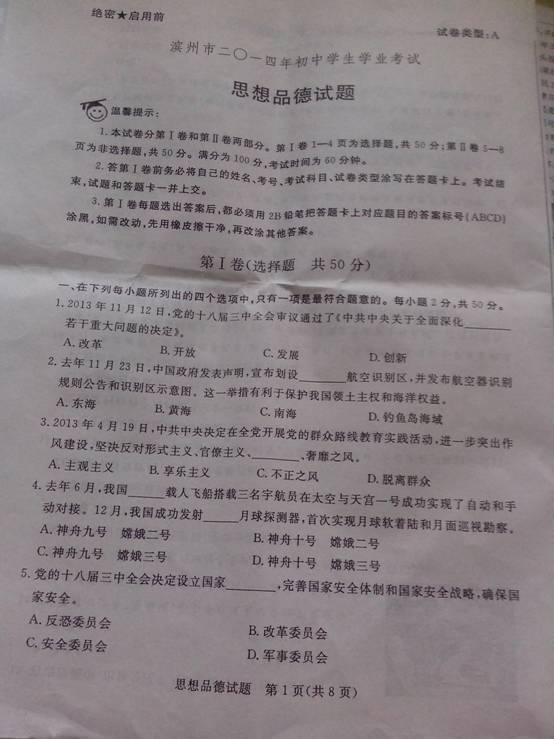 绝密★启用前
试卷类型:A
滨州市二〇一四年初中学生学业考试
思想品德试题
温馨提示:
1.本试卷分第Ⅰ卷和第Ⅱ卷两部分。第Ⅰ卷1—4页为选择题,共50分;第Ⅱ卷5—8
页为非选择题,共50分。满分为100分,考试时间为60分钟。
2.答第Ⅰ卷前务必将自己的姓名、考号、考试科目、试卷类型涂写在答题卡上。考试结
束,试题和答题卡一并上交。
3.第Ⅰ卷每题选出答案后,都必须用2B铅笔把答题卡上对应题目的答案标号[ABCD]
涂黑,如需改动,先用橡皮擦干净,再改涂其他答案。
第Ⅰ卷(选择题 共50分)
一、在下列每小题所列出的四个选项中,只有一项是最符合题意的。每小题2分,共50分。
1.2013年11月12日,党的十八届三中全会审议通过了《中共中央关于全面深化______
若干重大问题的决定》。
A.改革 B.开放 C.发展 D.创新
2.去年11月23日,中国政府发表声明,宣布划设______航空识别区,并发布航空器识别
规则公告和识别区示意图。这一举措有利于保护我国领土主权和海洋权益。
A.东海 B.黄海 C.南海 D.钓鱼岛海域
3.2013年4月19日,中共中央决定在全党开展党的群众路线教育实践活动,进一步突出作
风建设,坚决反对形式主义、官僚主义、______、奢靡之风。
A.主观主义 B.享乐主义 C.不正之风 D.脱离群众
4.去年6月,我国______载人飞船搭载三名宇航员在太空与天宫一号成功实现了自动和手
动对接。12月,我国成功发射______月球探测器,首次实现月球软着陆和月面巡视勘察。
A.神舟九号 嫦娥二号 B.神舟十号 嫦娥二号
C.神舟九号 嫦娥三号 D.神舟十号 嫦娥三号
5.党的十八届三中全会决定设立国家______,完善国家安全体制和国家安全战略,确保国
家安全。
A.反恐委员会 B.改革委员会
C.安全委员会 D.军事委员会
思想品德试题 第1页(共8页)